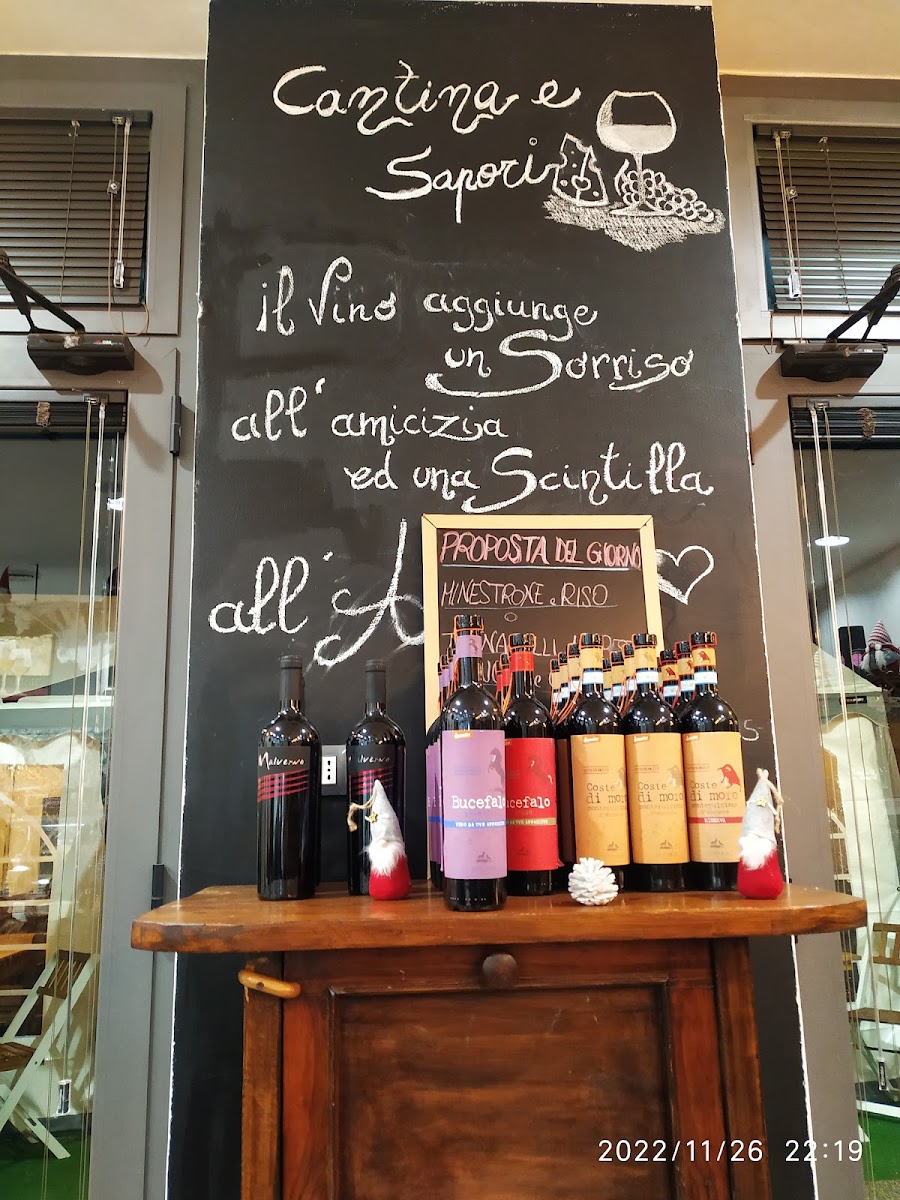 Cantina e
Sapori
il Vino aggiunge
un Sorriso
all'amicizia
ed una Scintilla
all'A
PROPOSTA DEL GIORNO
MINESTRONE e RISO
Malverno
Bucefalo
VINO DA UVE APPASSITE
Bucefalo
Coste
di moro
Coste
di moro
Coste
di moro
RISERVA
2022/11/26 22:19